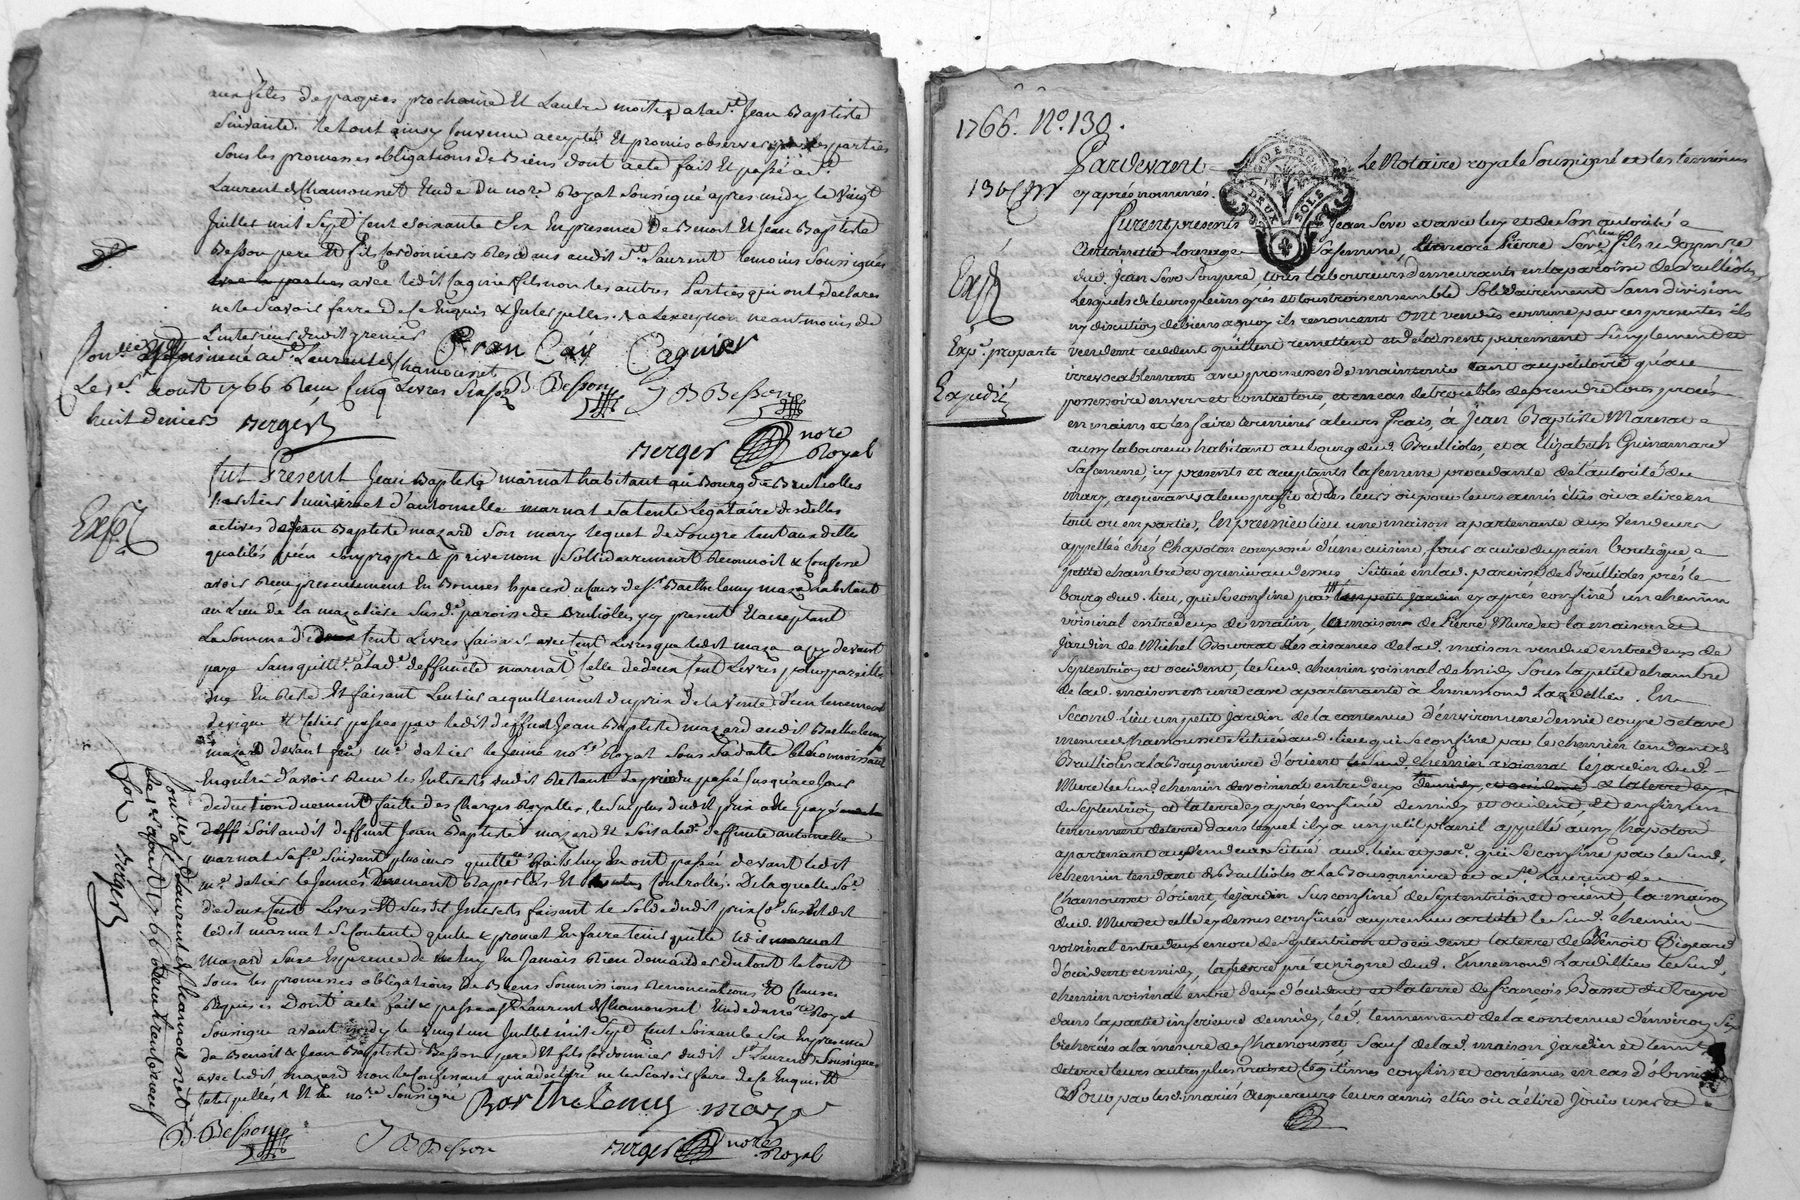 aux fêtes de paques prochaine Et Lautre moitié a la st. Jean Baptiste
Suivante. le tout ainsy Convenu accepté Et promis observer par les parties
Sous les promesses obligations de Biens dont acte fait Et passé à St.
Laurent de Chamousset Etude du nore. Royal Soussigné apres midy le Vingt
Juillet mil Sept Cent Soixante Six En presence de Benoit Et Jean Baptiste
Besson pere Et fils Cordonniers residans audit St. Laurent temoins Soussignés
avec ledit Cagnie fils non les autres Parties qui ont declaré
ne le Scavoir faire de ce Enquis & Interpellés.
L'interieur dudit grenier
Fran Laÿ Cagnier
a St. Laurent de Chamousset
Le aoust 1766 Reçu Cinq Livres
huit deniers Berger
B. Besson J B Besson
Berger nore Royal
Exp.
Fut Present Jean Baptiste marnat habitant au Bourg de Brulioles
heritier universel d'antoinette marnat Sa tente Legataire des delles
actives de Jean Baptiste mazard Son mary lequel de Son gre tant aux delles
qualités qu'en Son propre & prive nom Sollidairement Reconnoit & Confesse
avoir Reçu presentement En Bonnes Especes du Cours de Sr. Barthelemy mazard habitant
au Lieu de la mazaliere Susde. paroisse de Brulioles, icy present Et acceptant
La Somme de Cent Livres faisant avec Cent Livres que ledit maza a cy devant
paye Sans quittce. a lade. deffuncte marnat Celle de deux Cent Livres
due En Reste Et faisant Lentier acquittement du prix de la Vente d'un tenement
de vigne Et Celier passée par ledit deffunt Jean Baptiste mazard audit Barthelemy
mazard devant feu me. dahier le jeune nore. Royal Sous Sa date Reconnoissant
En outre d'avoir Reçu les Interets dudit Restant de prix du passé Jusqu'à ce Jour
deduction duement faitte des Charges Royalles, le Surplus dudit prix a été payé
Soit audit deffunt Jean Baptiste mazard Et Soit a lade. deffuncte antoinette
marnat Sa fe. Suivant plusieurs quittces. qu'ils luy En ont passée devant ledit
me. dahier le Jeune duement Rapportés Et Controllés. De laquelle Soe.
de deux Cent Livres Et Susdit Interets faisant le Solde dudit prix
ledit marnat Se Contente quitte & promet En faire tenir quitte ledit
mazard Sans Esperence de ne luy En Jamais Rien demander du tout le tout
Sous les promesses obligations de Biens Soumissions Renonciations Et Clauses
Requises Dont acte fait & passé a St. Laurent de Chamousset Etude du nore. Royal
Soussigné avant midy le Vingt un Juillet mil Sept Cent Soixante Six En presence
de Benoit & Jean Baptiste Besson pere Et fils Cordonnier dudit St. Laurent Soussignés
avec ledit mazard non le Confessant qui a declaré ne le Scavoir faire de ce Enquis Et
Interpellés Et le nore. Soussigné
Barthelemy maza
B. Besson J B Besson Berger nore. Royal
a St. Laurent de Chamousset
Berger
1766. No. 130.
Pardevant Le Notaire royal Soussigné et les temoins
cy après nommés.
DEUX SOLS
Furent presents Jean Seve et avec luy et de Son autorité
Antoinette Loreuage Sa femme, et encore Pierre Seve leur fils
dud. Jean Seve Son pere, tous laboureurs demeurants en la paroisse de Brullioles,
Lesquels de leurs pleins grés et tous trois ensemble Solidairement Sans division
ny discution de biens a quoy ils renoncent Ont vendus comme par ces presentes ils
Exp. pro parte
Expedié
vendent cedent quittent remettent et delaissent purement Simplement et
irrevocablement avec promesses de maintenir tant au petitoire qu'au
possessoire envers et contre tous, et en cas de troubles de prendre tous procés
en mains et les faire terminer a leurs frais, à Jean Baptiste Marnat
aussy laboureur habitant au bourg dud. Brullioles, et a Elizabeth Guinamard
Sa femme, icy presents et acceptants la femme procedante de l'autorité du
mary, acquerants a leur proffit et des leurs ou pour leurs amis élûs ou a elire en
tout ou en partie, En premier lieu une maison apartenante aux Vendeurs
appellés chés Chapoton composé d'une cuisine, four a cuire du pain boutique,
petite chambre et grenier au dessus Scituée en lad. paroisse de Brullioles près le
bourg dud. lieu, qui Se confine par le petit jardin cy après confiné un chemin
voisinal entre deux de matin, la maison de Pierre Mure et la maison et
Jardin de Michel Bourrat des aisances de lad. maison vendue entre deux de
Septentrion et occident, le Sud. chemin voisinal de midy Sous la petite chambre
de lad. maison est une cave apartenante à Ennemond Lardellier. En
Second lieu un petit Jardin de la contenue d'environ une demie coupe octave
mesure de Chamousset Scitué aud. lieu qui Se confine par le chemin tendant de
Brullioles a la Bousgonniere d'orient le Jardin dud.
Mure le Sud. chemin de voisinal entre deux
du Septentrion et la terre cy après confiné de midy et occident, Et enfin un
tenement de terre dans lequel il y a un petit plamil appellé aussy Chapoton
apartenant aux Vendeurs Scitué aud. lieu et parse. qui Se confine par le Sud.
chemin tendant de Brullioles a La Bousgonniere et a St. Laurent de
Chamousset d'orient le jardin Sus confiné de Septentrion et orient la maison
dud. Mure et celle cy dessus confinée au premier article le Sud. chemin
voisinal entre deux encore de Septentrion et occident la terre de Benoit Pigeaud
d'occident et midy, la terre pré et vigne dud. Ennemond Lardellier le Sud.
chemin voisinal entre deux d'occident et la terre de François Basset du Treyve
dans la partie inferieure de midy, led. tennement de la contenue d'environ Six
bicherées a la mesure de Chamousset Sauf de lad. maison Jardin et tennt.
de terre leurs autres plus vrais et legitimes confins et contenues en cas d'obmis
Pour par lesd. mariés acquereurs leurs amis elûs ou a élire Jouir user et